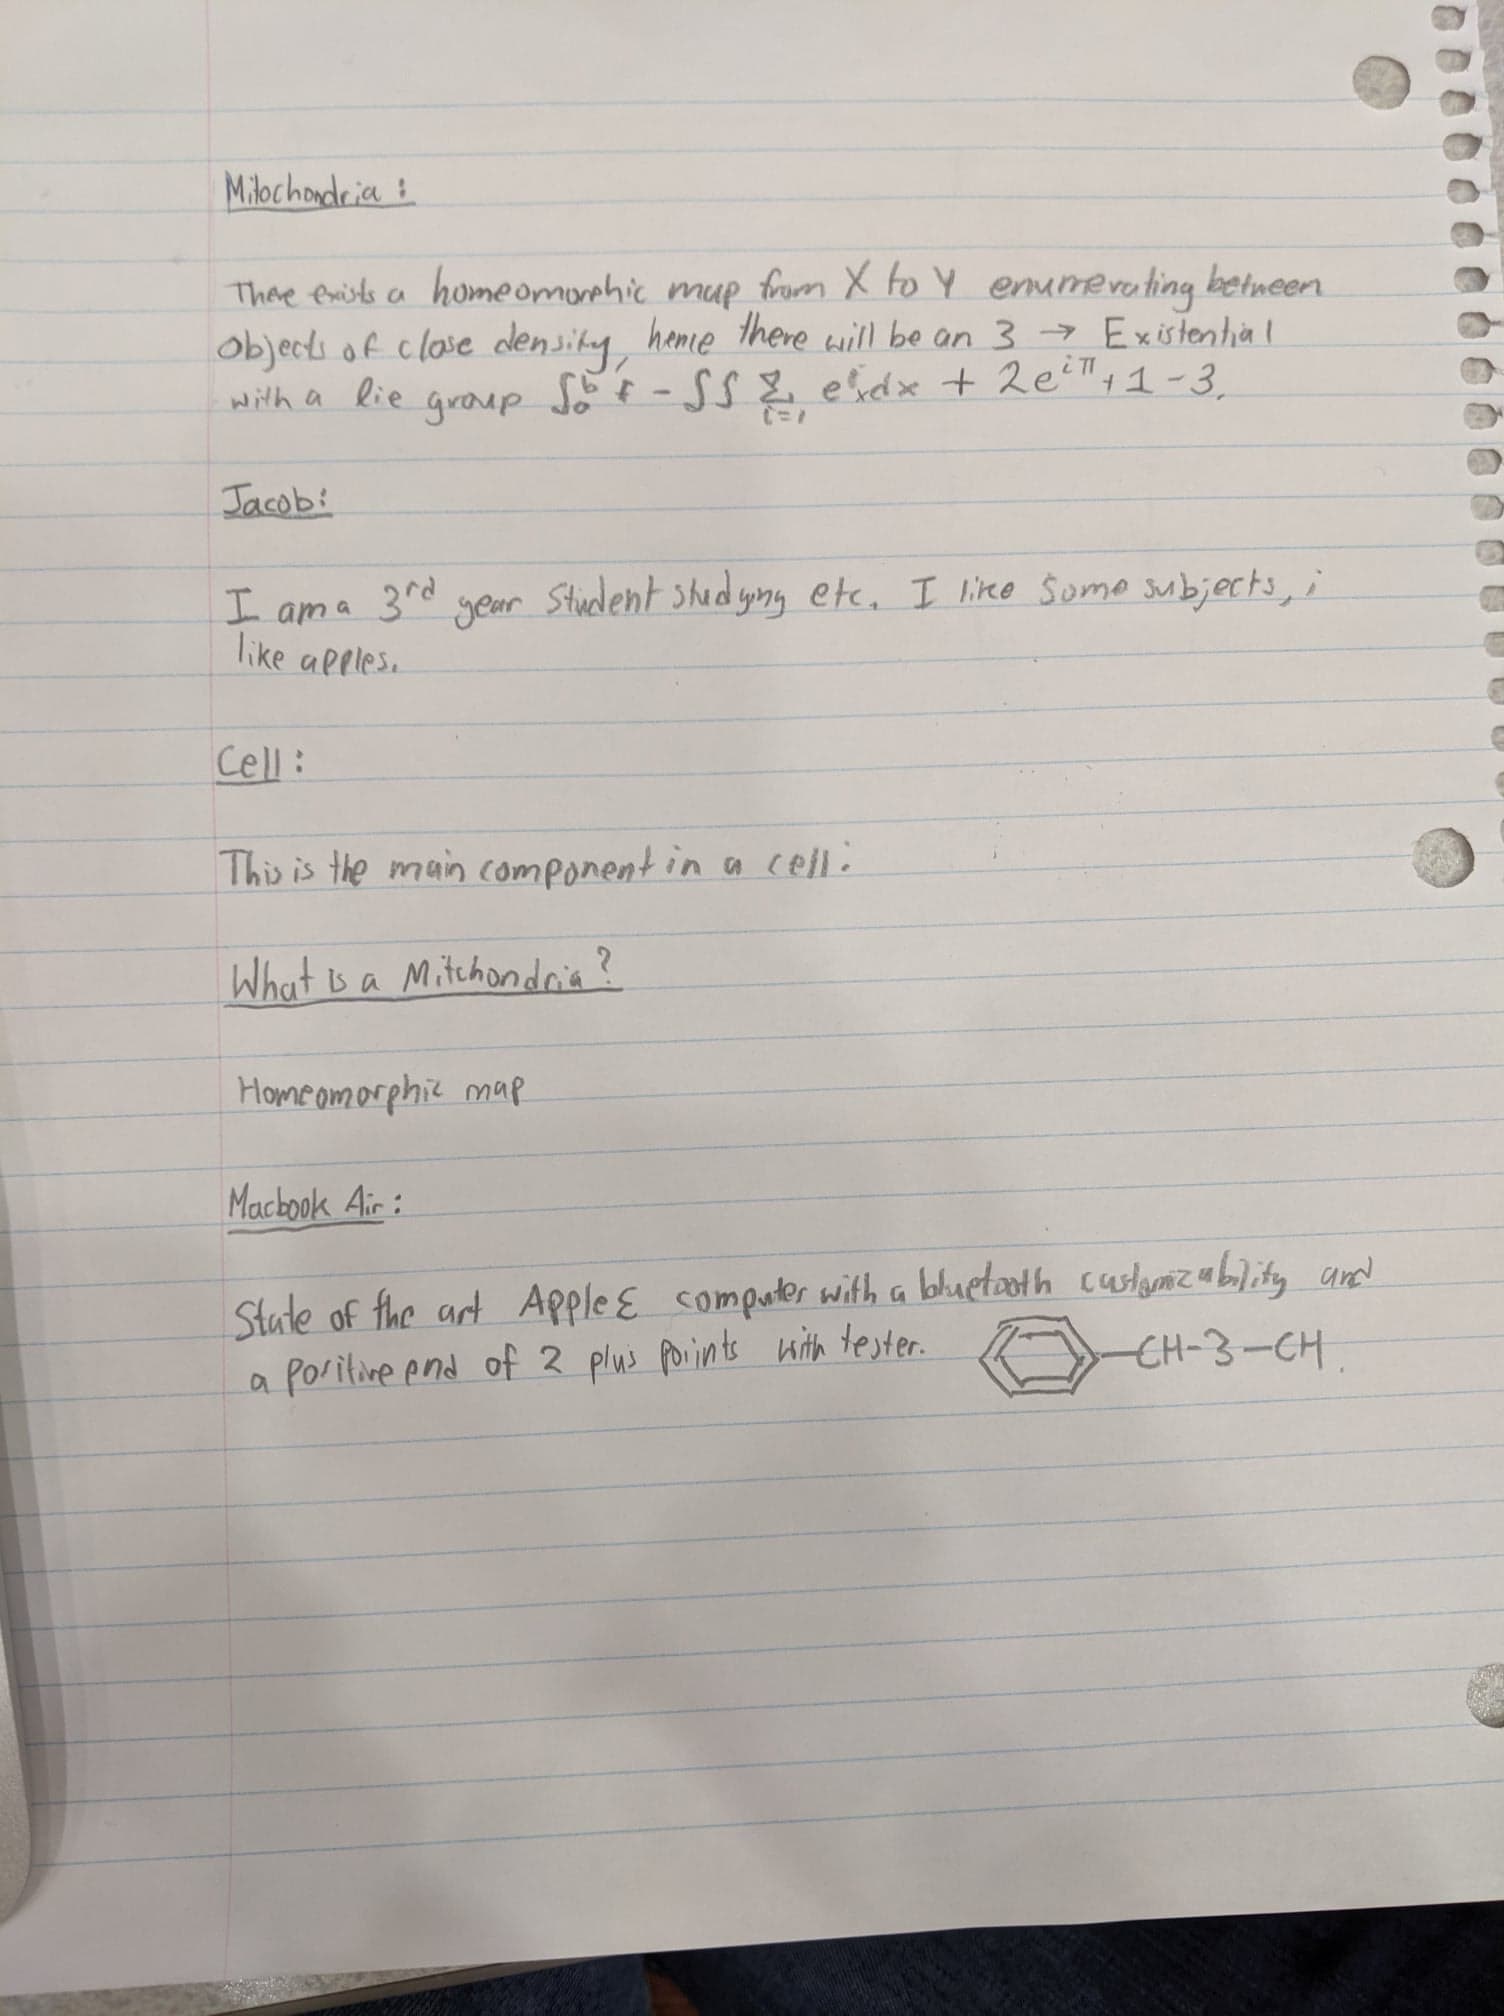 Mitochondria :
There exists a homeomorphic map from X to Y enumerating between
Objects of close density, hence there will be an 3 → Existential
with a lie group ∫₀ᵇ f - ∫∫ Σ i=1 eⁱx dx + 2e^iπ + 1 - 3.
Jacob:
I am a 3rd year Student studying etc. I like Some subjects, i
like apples.
Cell :
This is the main component in a cell:
What is a Mitchondria?
Homeomorphic map
Macbook Air :
State of the art Apple ε computer with a bluetooth customizability and
a positive end of 2 plus poiints with tester. -CH-3-CH.